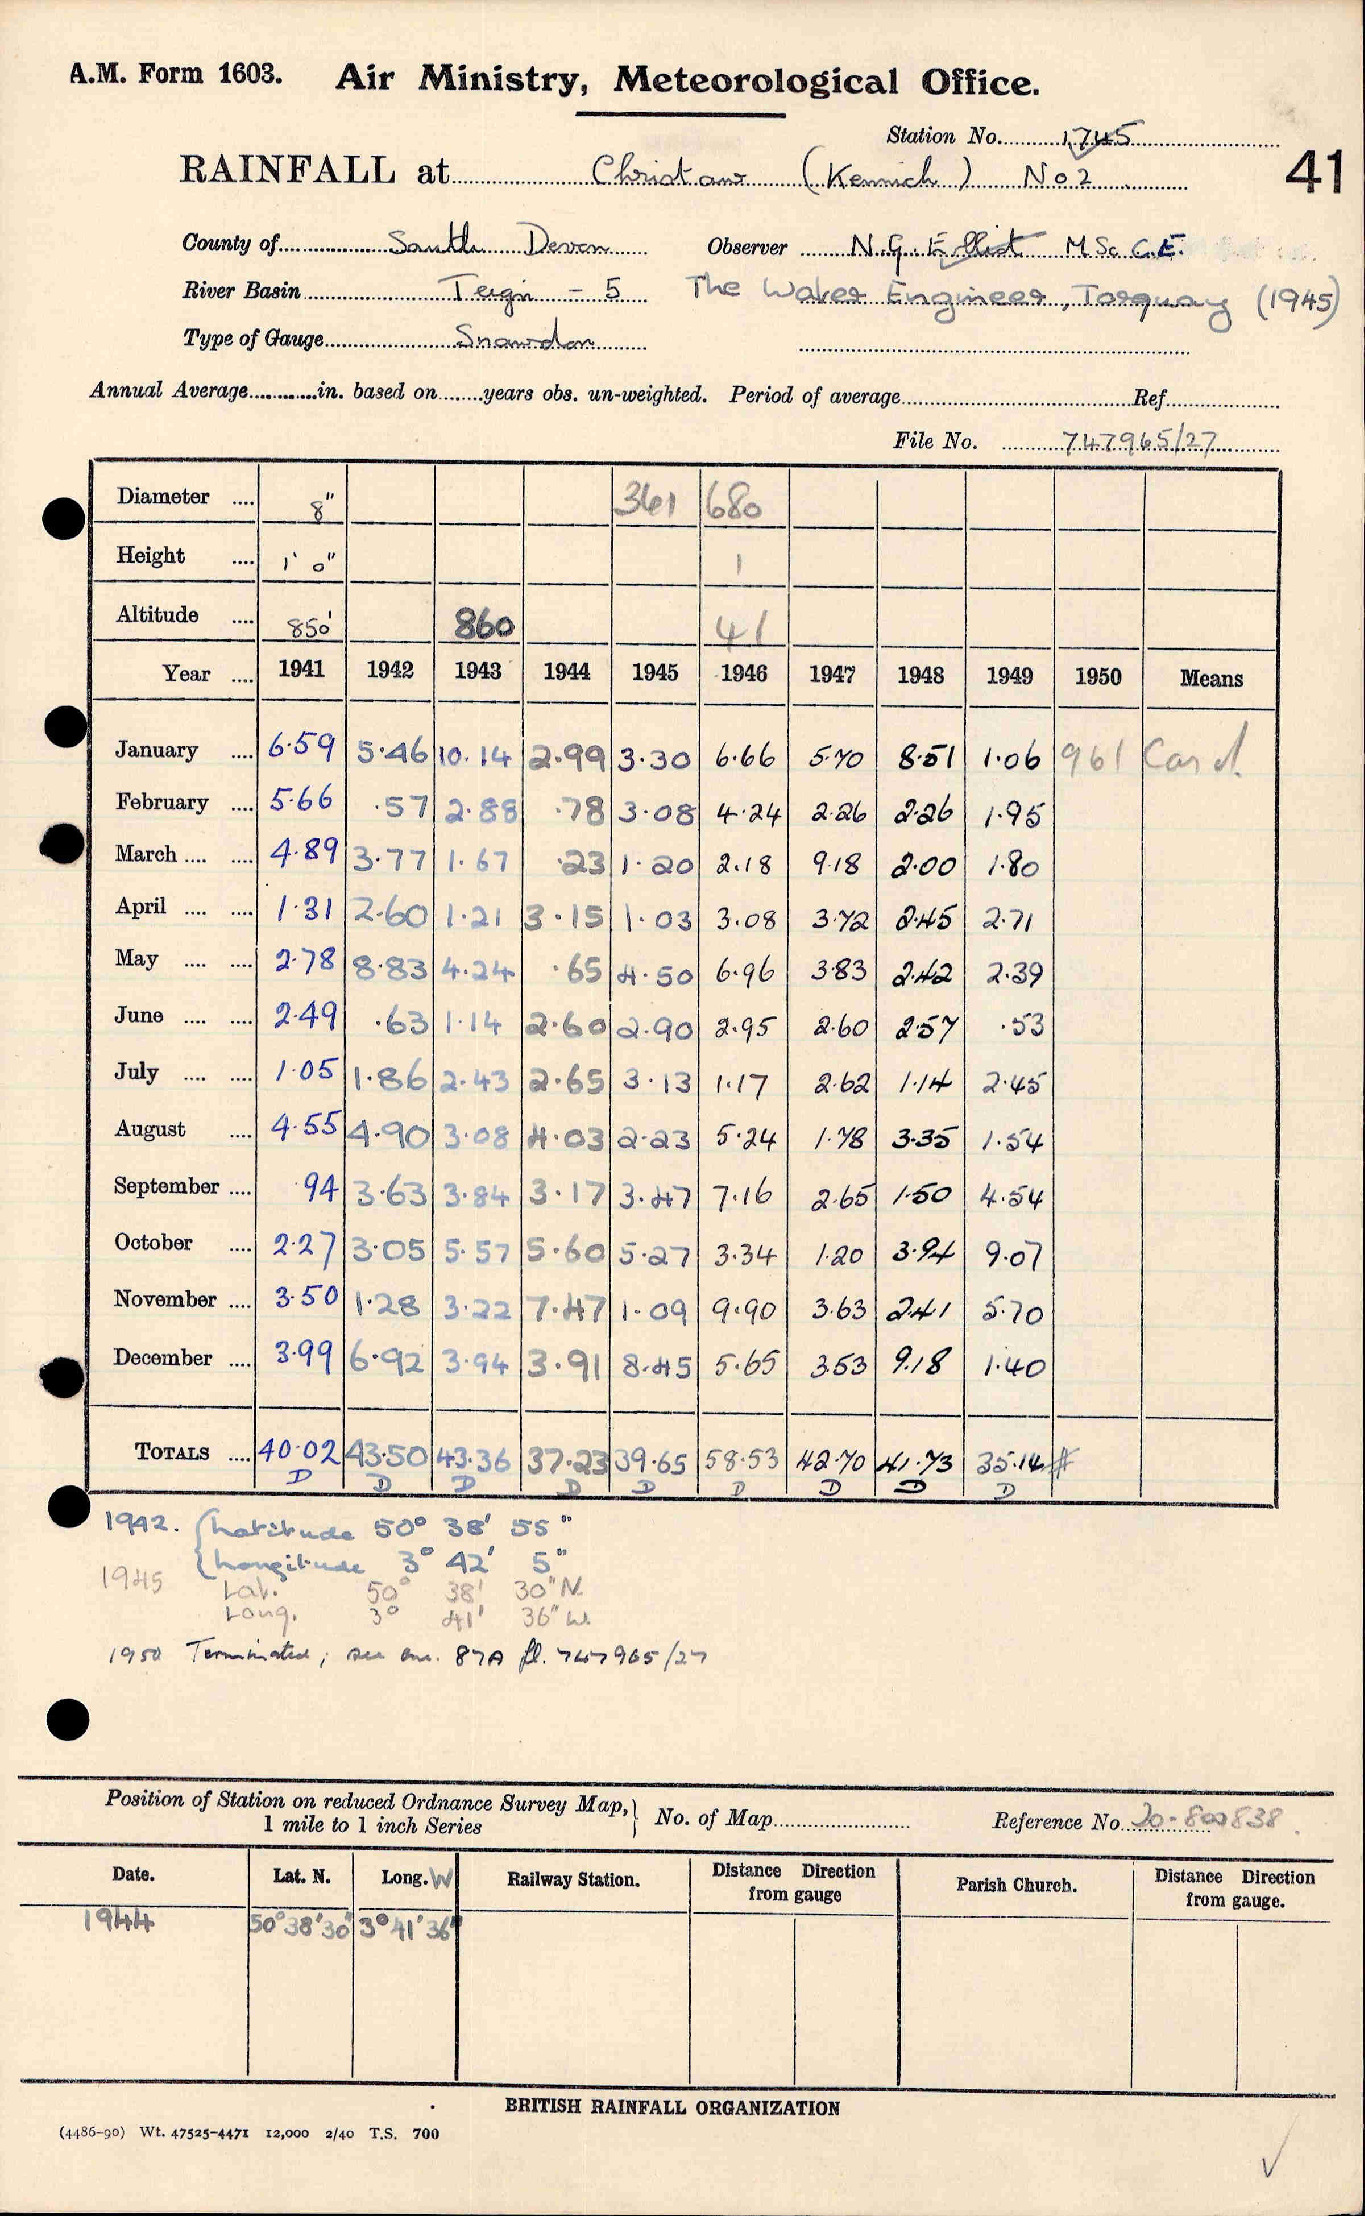 A.M. Form 1603. Air Ministry, Meteorological Office.
Station No. 1745
RAINFALL at Christow (Kennick) No 2 41
County of South Devon Observer N.G. Elliot M.Sc. C.E.
River Basin Teign - 5 The Water Engineer, Torquay (1945)
Type of Gauge Snowdon
Annual Average in. based on years obs. un-weighted. Period of average Ref.
File No. 747965/27
Diameter 8" 361 680
Height 1' 0" 1
Altitude 850' 860 41
Year 1941 1942 1943 1944 1945 1946 1947 1948 1949 1950 Means
January 6.59 5.46 10.14 2.99 3.30 6.66 5.70 8.51 1.06 961 Card.
February 5.66 .57 2.88 .78 3.08 4.24 2.26 2.26 1.95
March 4.89 3.77 1.67 .23 1.20 2.18 9.18 2.00 1.80
April 1.31 2.60 1.21 3.15 1.03 3.08 3.72 2.45 2.71
May 2.78 8.83 4.24 .65 4.50 6.96 3.83 2.42 2.39
June 2.49 .63 1.14 2.60 2.90 2.95 2.60 2.57 .53
July 1.05 1.86 2.43 2.65 3.13 1.17 2.62 1.14 2.45
August 4.55 4.90 3.08 4.03 2.23 5.24 1.78 3.35 1.54
September .94 3.63 3.84 3.17 3.47 7.16 2.65 1.50 4.54
October 2.27 3.05 5.57 5.60 5.27 3.34 1.20 3.94 9.07
November 3.50 1.28 3.22 7.47 1.09 9.90 3.63 2.41 5.70
December 3.99 6.92 3.94 3.91 8.45 5.65 3.53 9.18 1.40
TOTALS 40.02 43.50 43.36 37.23 39.65 58.53 42.70 41.73 35.14 #
D D D D D D D D D
1942. Latitude 50° 38' 55"
Longitude 3° 42' 5"
1945 Lat. 50° 38' 30" N.
Long. 3° 41' 36" W.
1950 Terminated; see enc. 87A fl. 747965/27
Position of Station on reduced Ordnance Survey Map,
1 mile to 1 inch Series No. of Map Reference No. 20-800838.
Date. Lat. N. Long. W Railway Station. Distance Direction from gauge Parish Church. Distance Direction from gauge.
1944 50° 38' 30" 3° 41' 36"
BRITISH RAINFALL ORGANIZATION
(4486-90) Wt. 47525-4471 12,000 2/40 T.S. 700